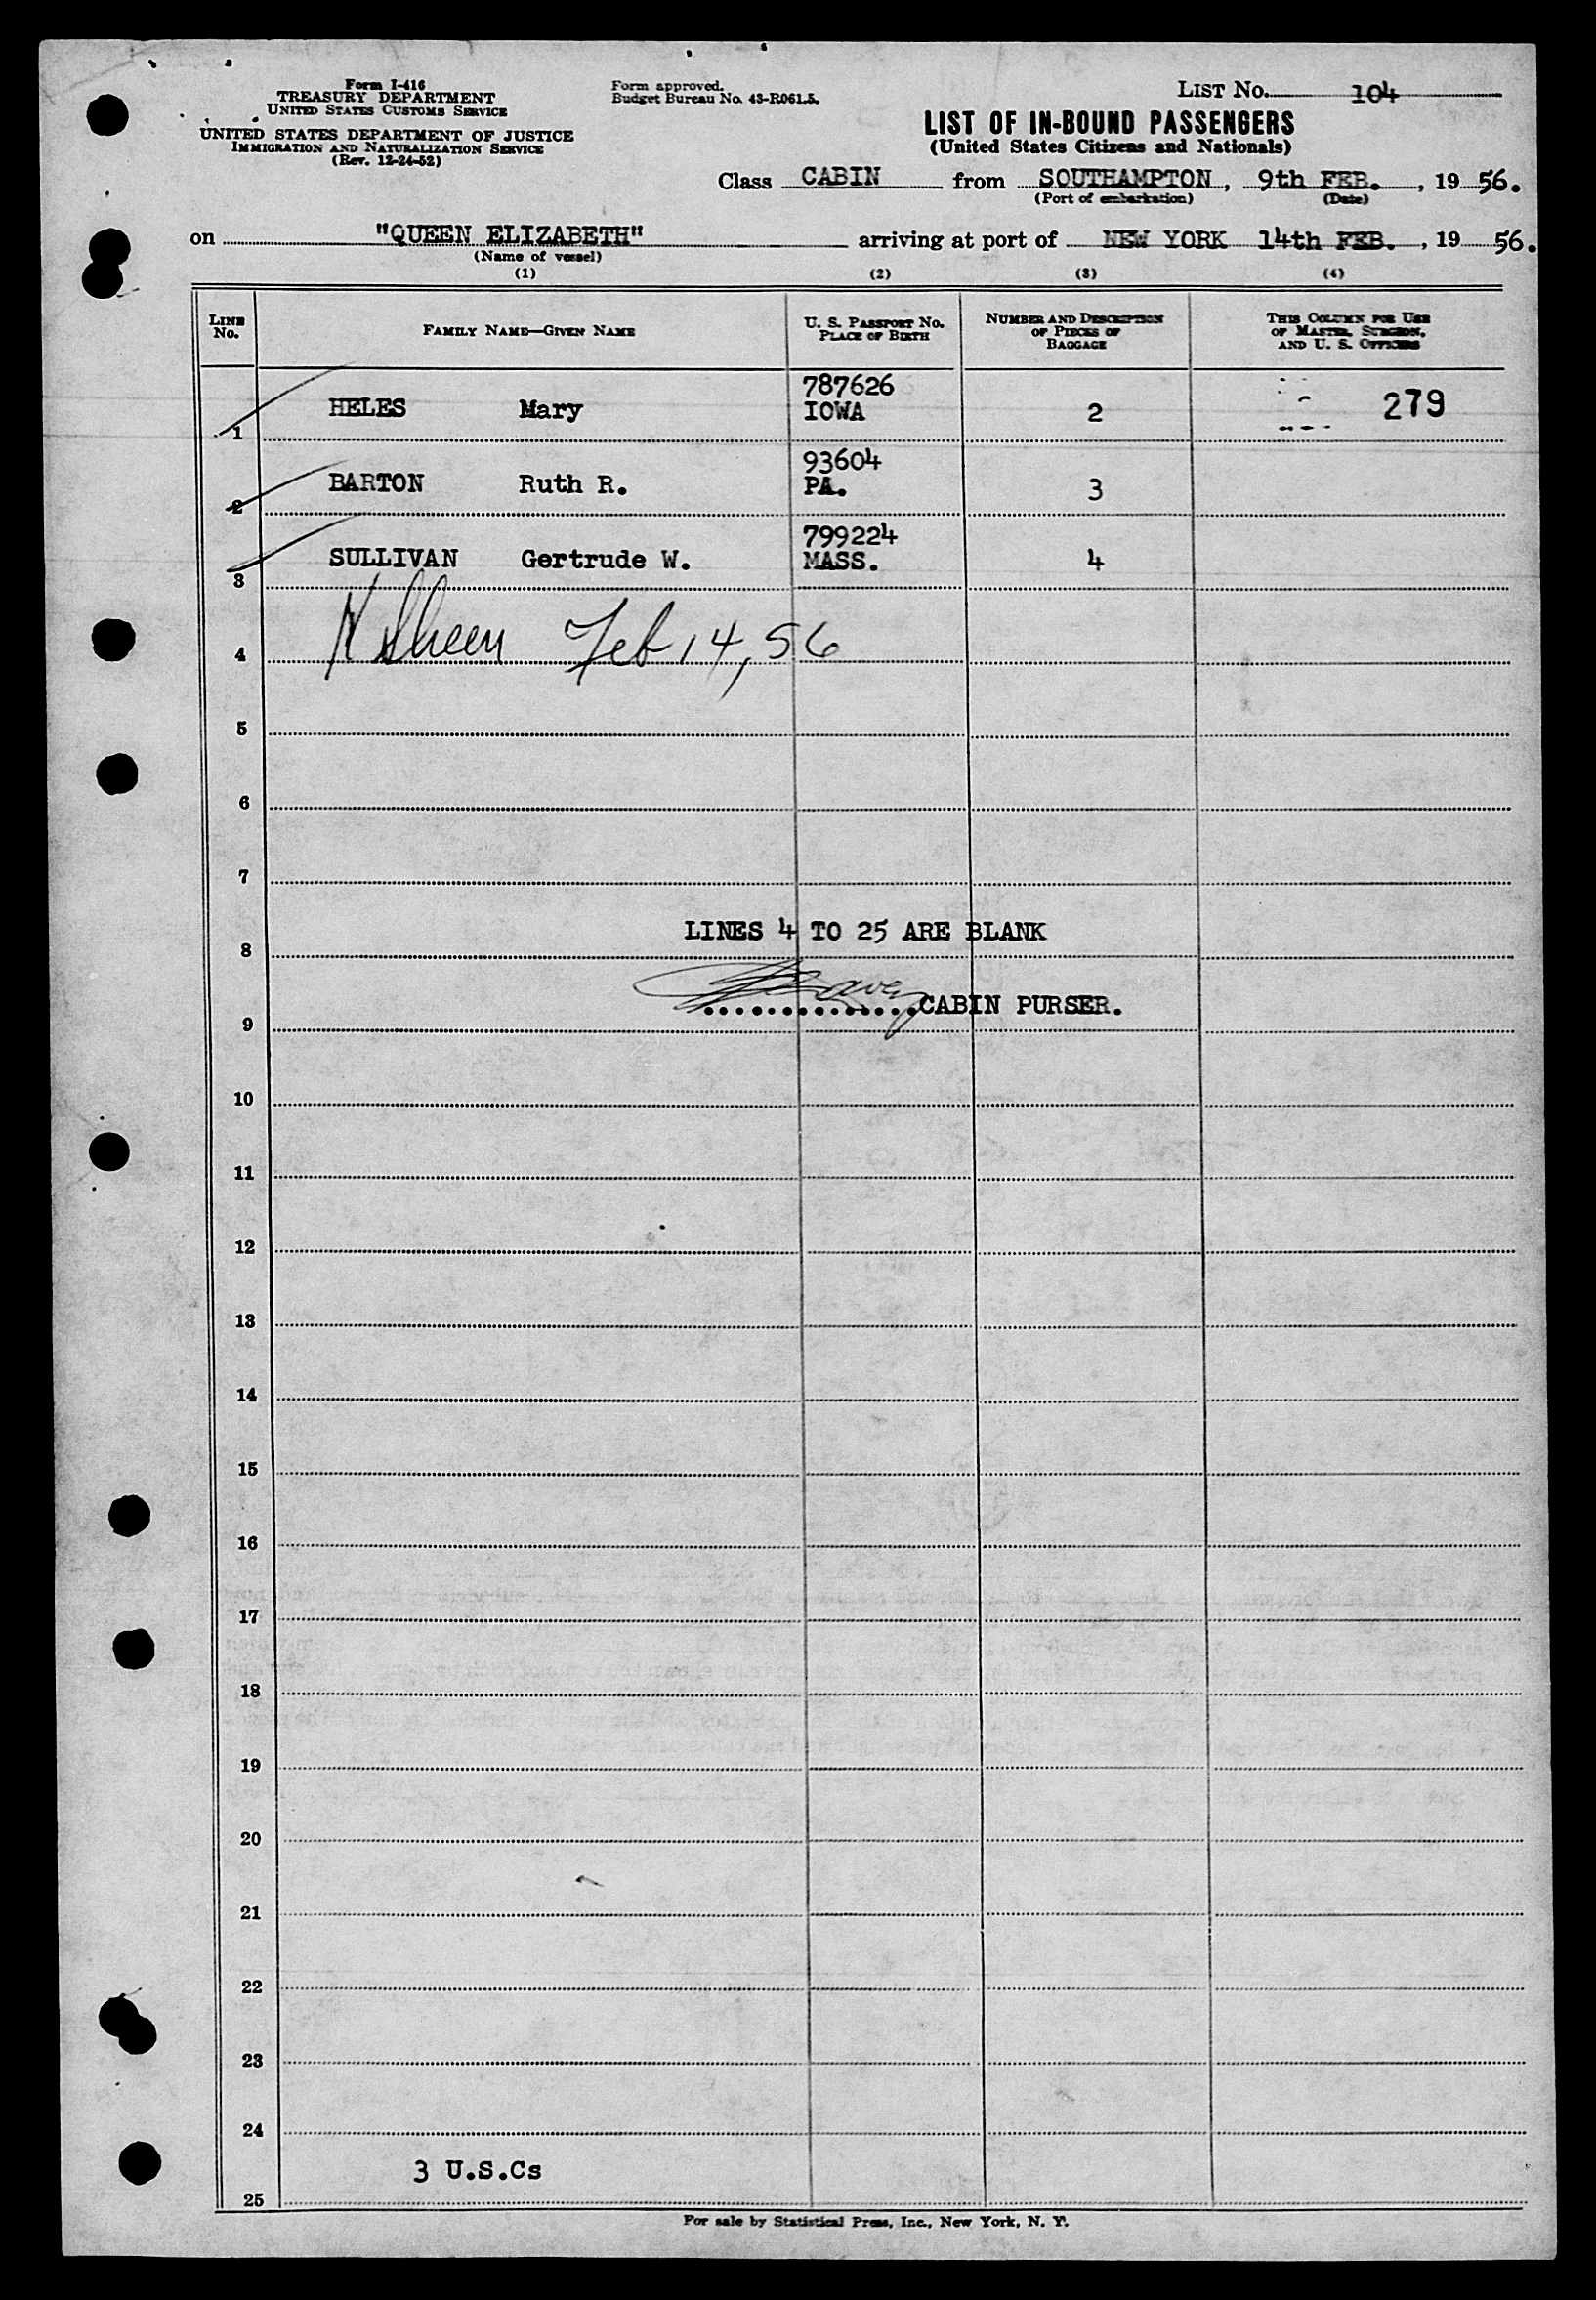 Form I-416
TREASURY DEPARTMENT
UNITED STATES CUSTOMS SERVICE
UNITED STATES DEPARTMENT OF JUSTICE
IMMIGRATION AND NATURALIZATION SERVICE
(Rev. 12-24-52)
Form approved.
Budget Bureau No. 43-R061.5.
LIST No. 104
LIST OF IN-BOUND PASSENGERS
(United States Citizens and Nationals)
Class CABIN from SOUTHAMPTON, 9th FEB., 19 56.
(Port of embarkation) (Date)
on "QUEEN ELIZABETH" arriving at port of NEW YORK 14th FEB., 19 56.
(Name of vessel)
(1) (2) (3) (4)
LINE No. FAMILY NAME—GIVEN NAME U. S. PASSPORT No. PLACE OF BIRTH NUMBER AND DESCRIPTION OF PIECES OF BAGGAGE THIS COLUMN FOR USE OF MASTER, SURGEON, AND U. S. OFFICERS
787626
1 HELES Mary IOWA 2 279
93604
2 BARTON Ruth R. PA. 3
799224
3 SULLIVAN Gertrude W. MASS. 4
4 Sheen Feb 14, 56
5
6
7
LINES 4 TO 25 ARE BLANK
8
CABIN PURSER.
9
10
11
12
13
14
15
16
17
18
19
20
21
22
23
24
3 U.S.Cs
25
For sale by Statistical Press, Inc., New York, N. Y.